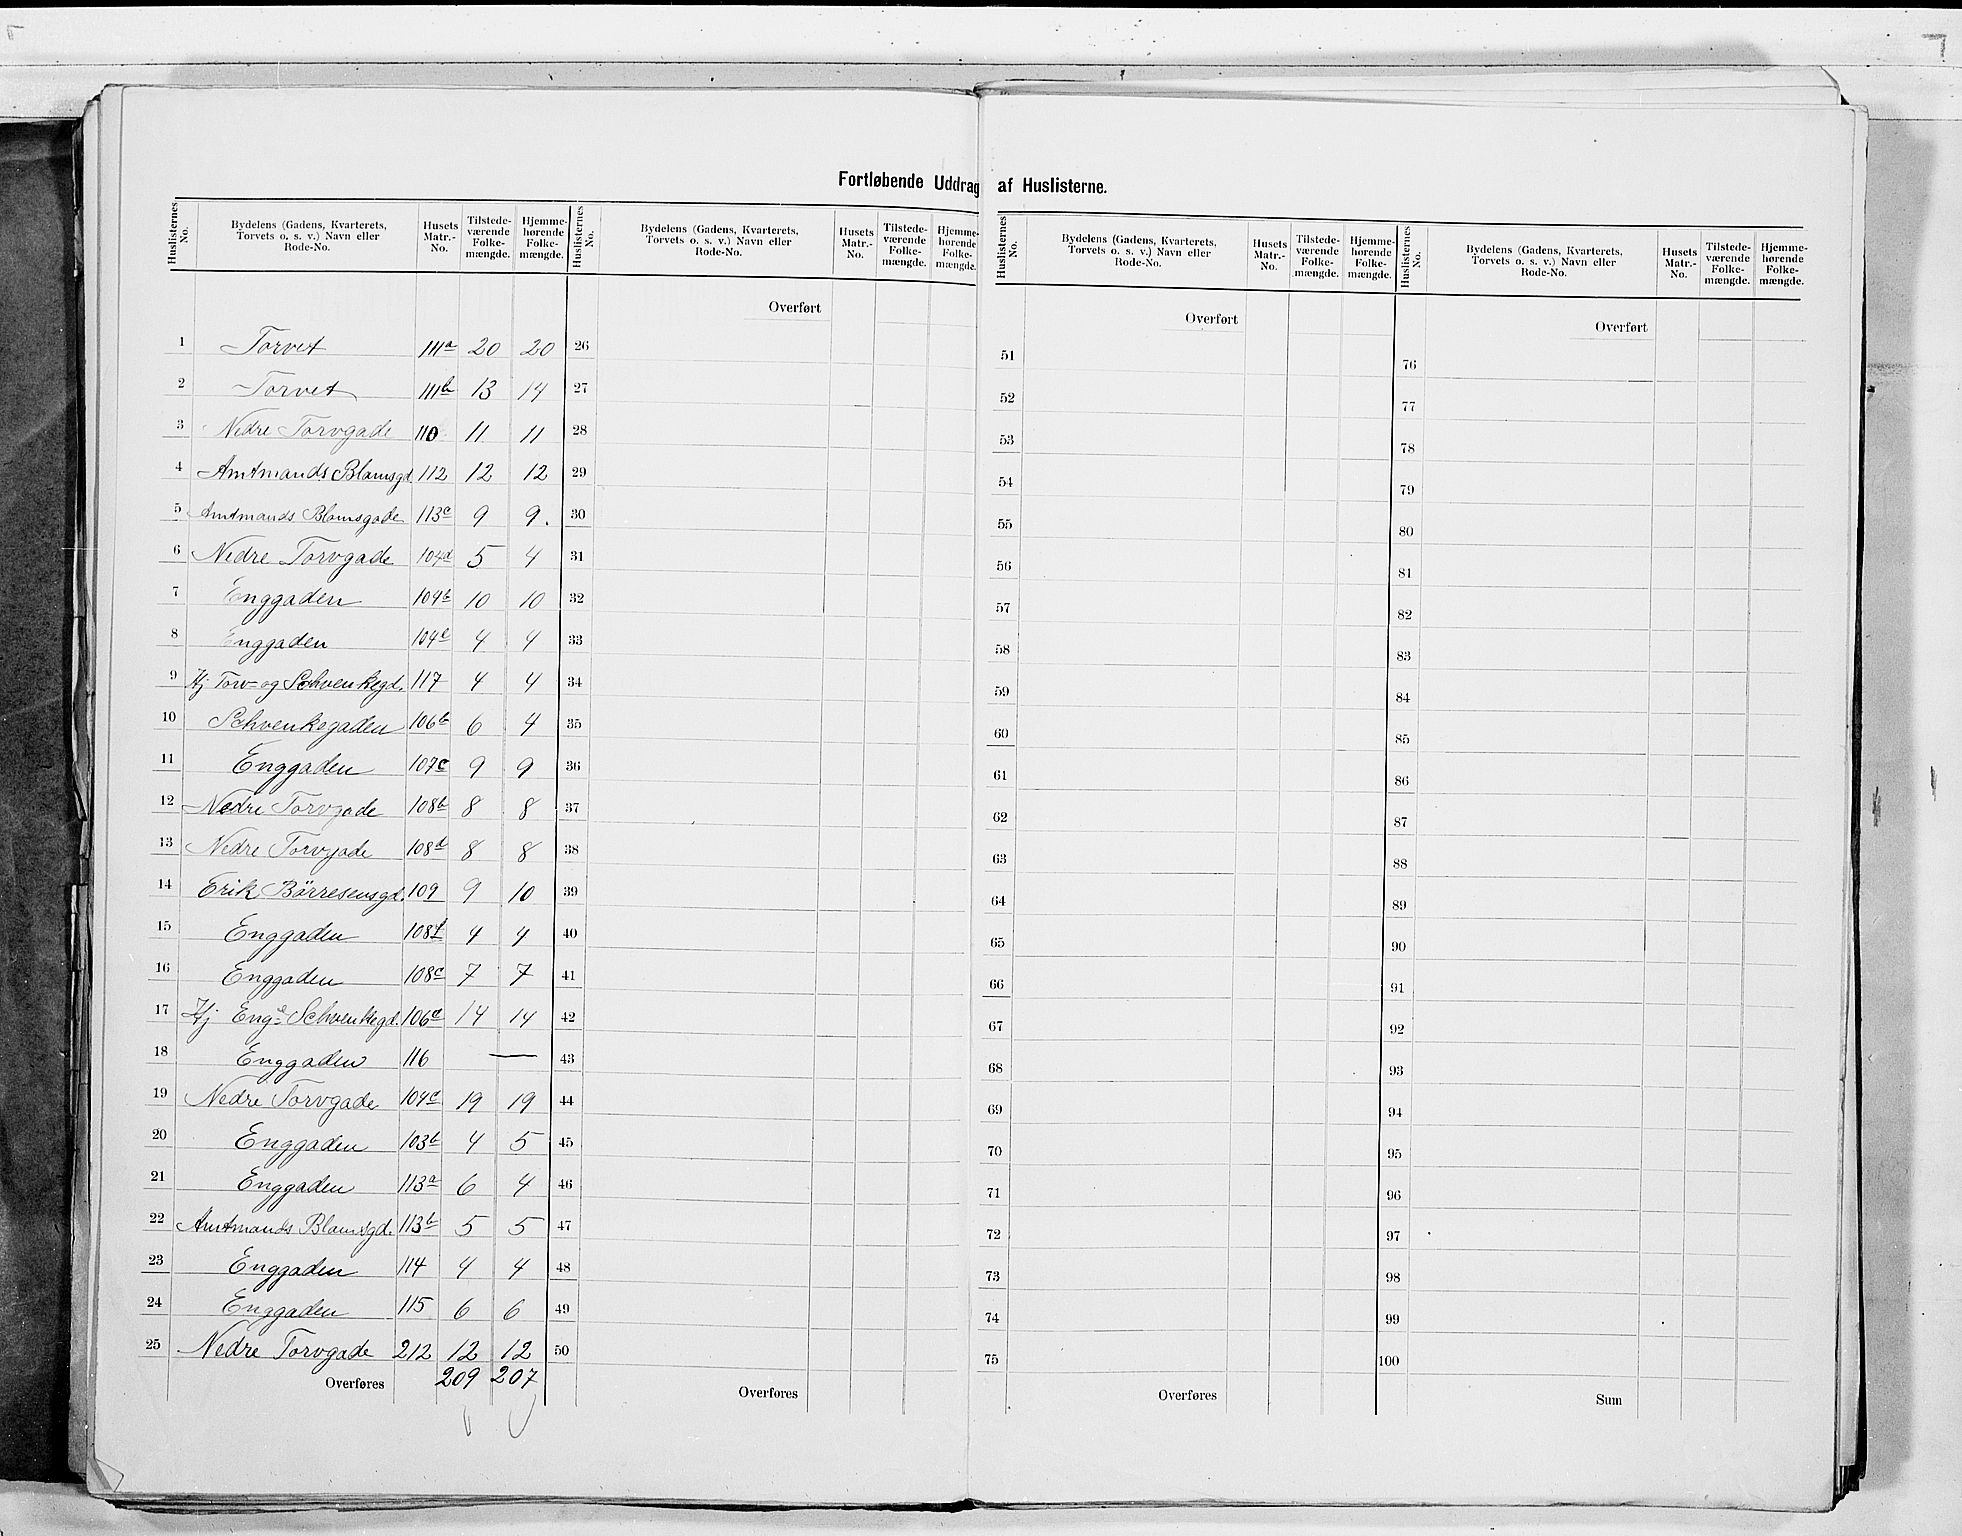 Fortløbende Uddrag af Huslisterne.
Huslisternes No. | Bydelens (Gadens, Kvarterets, Torvets o. s. v.) Navn eller Rode-No. | Husets Matr.-No. | Tilstedeværende Folkemængde. | Hjemmehørende Folkemængde. | Huslisternes No. | Bydelens (Gadens, Kvarterets, Torvets o. s. v.) Navn eller Rode-No. | Husets Matr.-No. | Tilstedeværende Folkemængde. | Hjemmehørende Folkemængde. | Huslisternes No. | Bydelens (Gadens, Kvarterets, Torvets o. s. v.) Navn eller Rode-No. | Husets Matr.-No. | Tilstedeværende Folkemængde. | Hjemmehørende Folkemængde. | Huslisternes No. | Bydelens (Gadens, Kvarterets, Torvets o. s. v.) Navn eller Rode-No. | Husets Matr.-No. | Tilstedeværende Folkemængde. | Hjemmehørende Folkemængde.
Overført | Overført | Overført
1 Torvet 111a 20 20 | 26 | 51 | 76
2 Torvet 111b 13 14 | 27 | 52 | 77
3 Nedre Torvgade 110 11 11 | 28 | 53 | 78
4 Amtmands Blomsgd. 112 12 12 | 29 | 54 | 79
5 Amtmands Blomsgade 113c 9 9. | 30 | 55 | 80
6 Nedre Torvgade 104d 5 4 | 31 | 56 | 81
7 Enggaden 104b 10 10 | 32 | 57 | 82
8 Enggaden 104e 4 4 | 33 | 58 | 83
9 Hj Torv- og Schvenkegd. 117 4 4 | 34 | 59 | 84
10 Schvenkegaden 106b 6 4 | 35 | 60 | 85
11 Enggaden 107c 9 9 | 36 | 61 | 86
12 Nedre Torvgade 108b 8 8 | 37 | 62 | 87
13 Nedre Torvgade 108d 8 8 | 38 | 63 | 88
14 Erik Börresensgd. 109 9 10 | 39 | 64 | 89
15 Enggaden 108f 4 4 | 40 | 65 | 90
16 Enggaden 108c 7 7 | 41 | 66 | 91
17 Hj Eng- & Schvenkegd. 106a 14 14 | 42 | 67 | 92
18 Enggaden 116 — | 43 | 68 | 93
19 Nedre Torvgade 104c 19 19 | 44 | 69 | 94
20 Enggaden 103b 4 5 | 45 | 70 | 95
21 Enggaden 113a 6 4 | 46 | 71 | 96
22 Amtmands Blomsgd. 113b 5 5 | 47 | 72 | 97
23 Enggaden 114 4 4 | 48 | 73 | 98
24 Enggaden 115 6 6 | 49 | 74 | 99
25 Nedre Torvgade 212 12 12 | 50 | 75 | 100
Overføres 209 207 | Overføres | Overføres | Sum